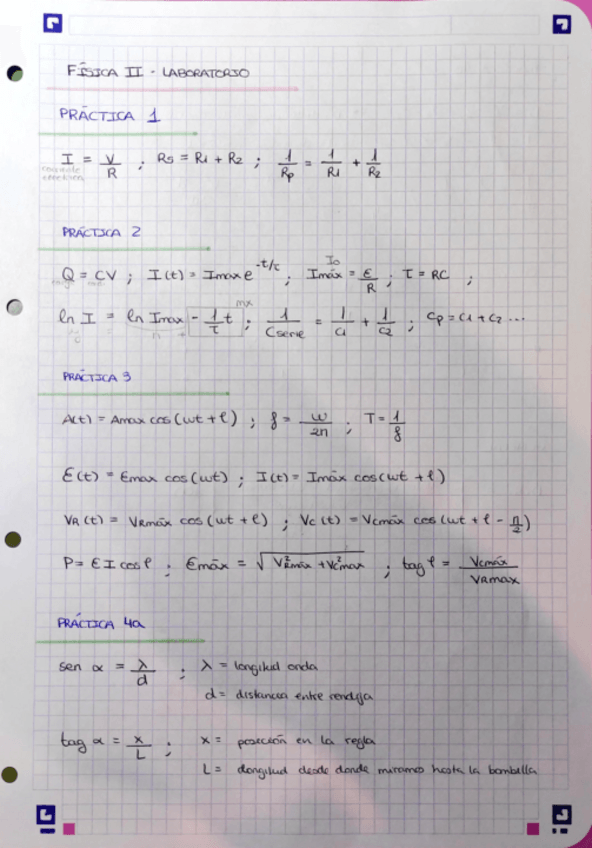 FÍSICA II - LABORATORIO
PRÁCTICA 1
I = V/R ; Rs = R1 + R2 ; 1/Rp = 1/R1 + 1/R2
PRÁCTICA 2
Q = CV ; I(t) = Imax e^-t/τ ; Imáx = ε/R ; τ = RC ;
I0
ln I = ln Imax - 1/τ t ; 1/Cserie = 1/C1 + 1/C2 ; Cp = C1 + C2 ...
mx
n
PRÁCTICA 3
A(t) = Amax cos(wt + φ) ; f = w/2π ; T = 1/f
ε(t) = εmax cos(wt) ; I(t) = Imáx cos(wt + φ)
VR(t) = VRmáx cos(wt + φ) ; Vc(t) = Vcmáx cos(wt + φ - π/2)
P = εI cosφ ; εmáx = √VRmáx² + Vcmax² ; tag φ = Vcmáx/VRmax
PRÁCTICA 4a
sen α = λ/d ; λ = longitud onda
d = distancia entre rendija
tag α = x/L ; x = posición en la regla
L = longitud desde donde miramos hasta la bombilla